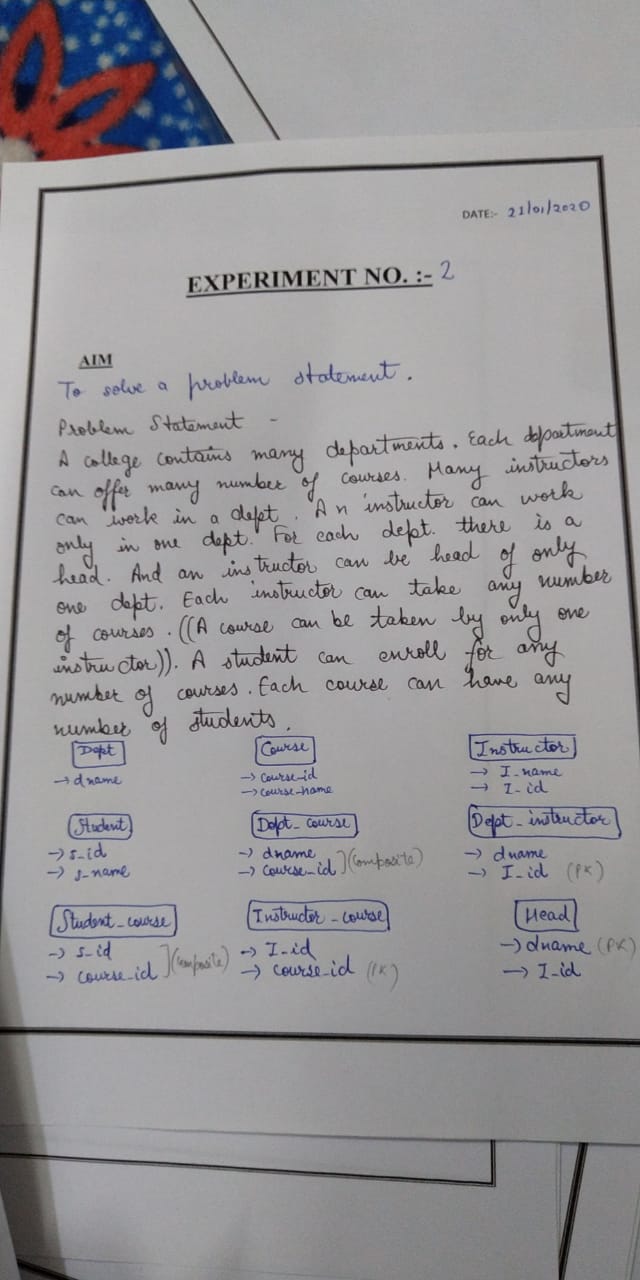 DATE:- 21/01/2020
EXPERIMENT NO. :- 2
AIM
To solve a problem statement.
Problem Statement -
A college contains many departments. Each department
can offer many number of courses. Many instructors
can work in a dept. An instructor can work
only in one dept. For each dept. there is a
head. And an instructor can be head of only
one dept. Each instructor can take any number
of courses. ((A course can be taken by only one
instructor)). A student can enroll for any
number of courses. Each course can have any
number of students.
Dept Course Instructor
→ dname → course-id → I-name
→ course-name → I-id
Student Dept-course Dept-instructor
→ s-id → dname → dname
→ s-name → course-id ](composite) → I-id (PK)
Student-course Instructor-course Head
→ s-id → I-id → dname (PK)
→ course-id ](composite) → course-id (PK) → I-id